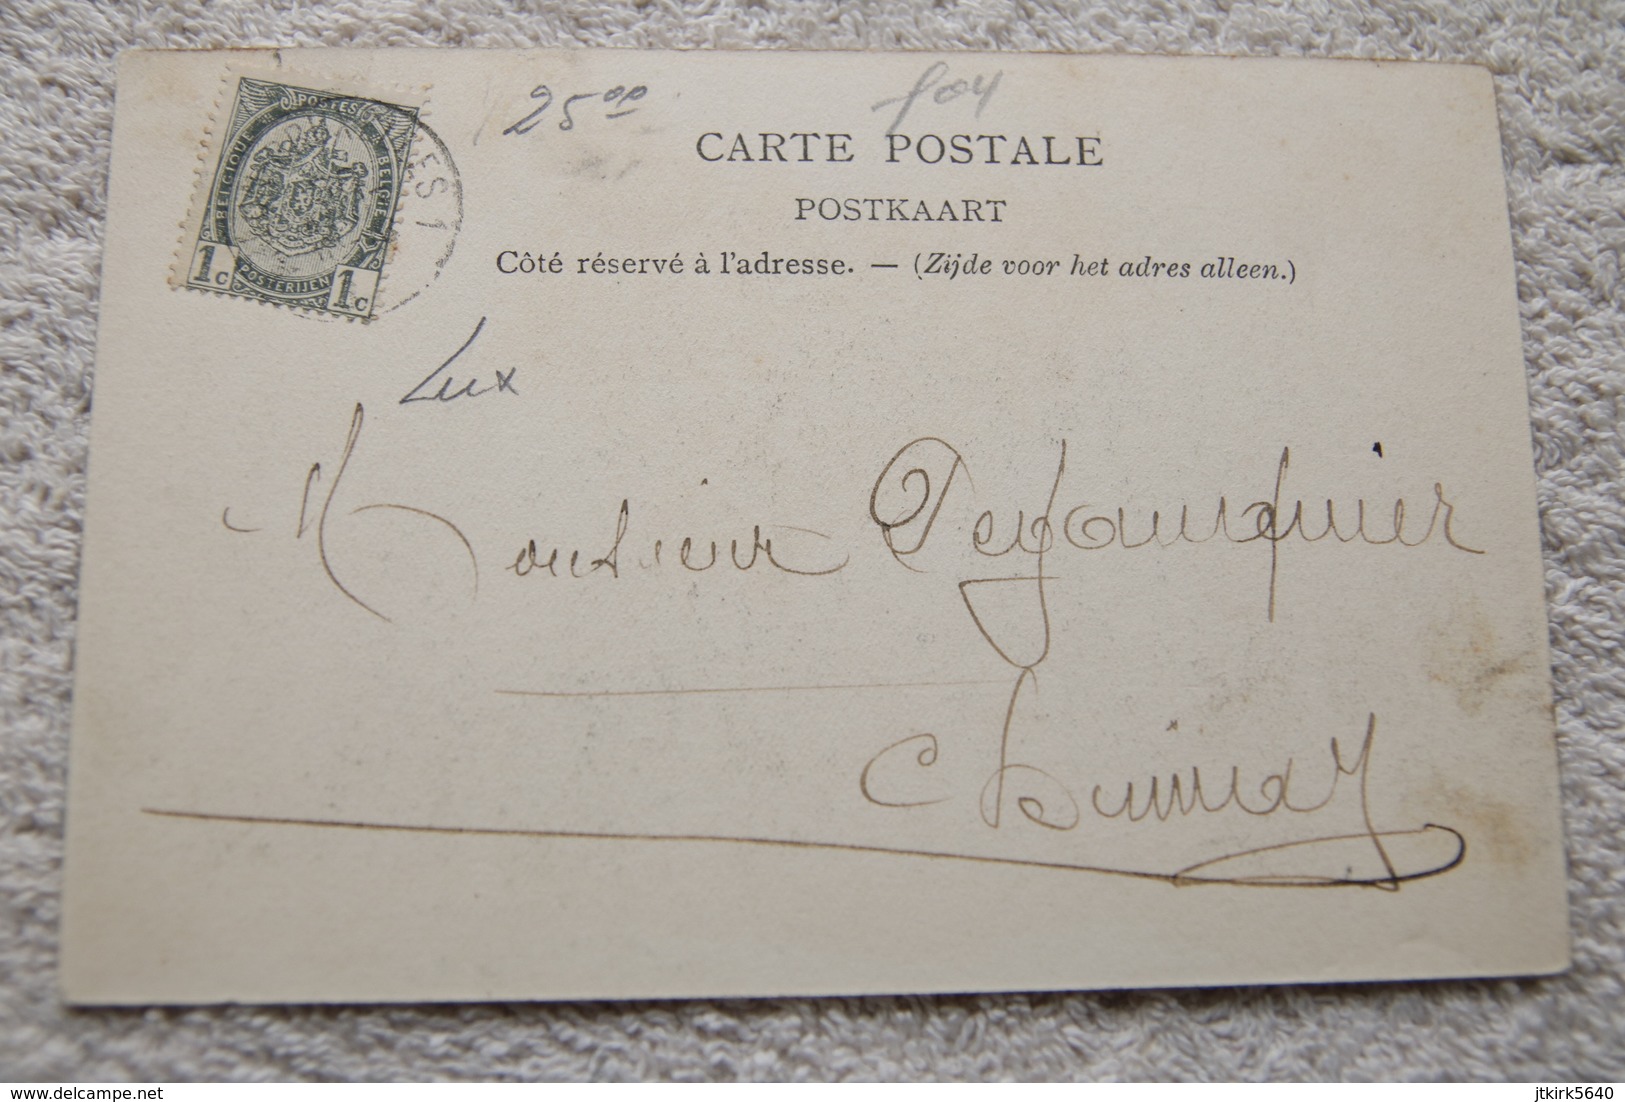 BELGIQUE POSTES BELGIE
1c POSTERIJEN 1c
ES 1
25 00
904
CARTE POSTALE
POSTKAART
Côté réservé à l'adresse. — (Zijde voor het adres alleen.)
Lux
Monsieur
Chimay
delcampe.net
jtkirk5640